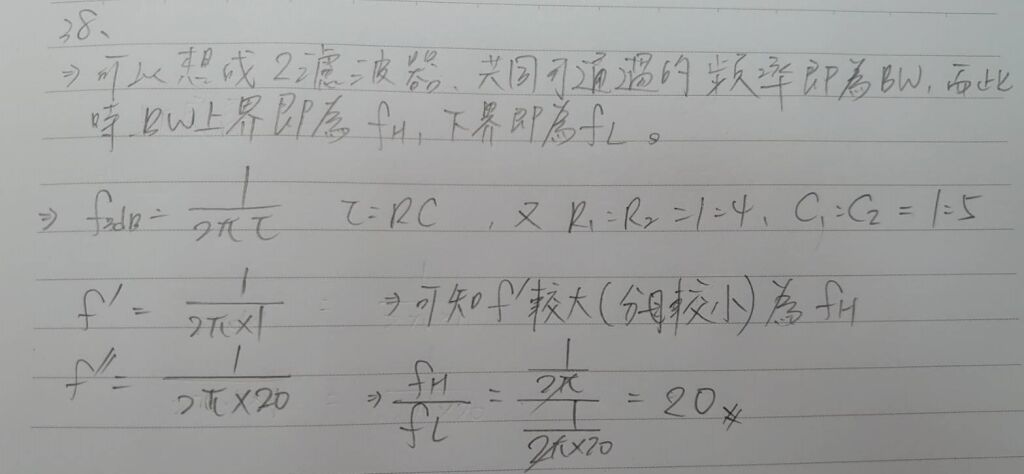 38、
⇒ 可以想成2濾波器、共同可通過的頻率即為BW,而此
時BW上界即為fH,下界即為fL。
⇒ f3dB = 1/2πτ τ=RC ,又 R₁:R₂=1:4、C₁:C₂=1:5
f' = 1/2π×1 ⇒可知f'較大(分母較小)為fH
f'' = 1/2π×20 ⇒ fH/fL = (1/2π)/(1/2π×20) = 20 ※